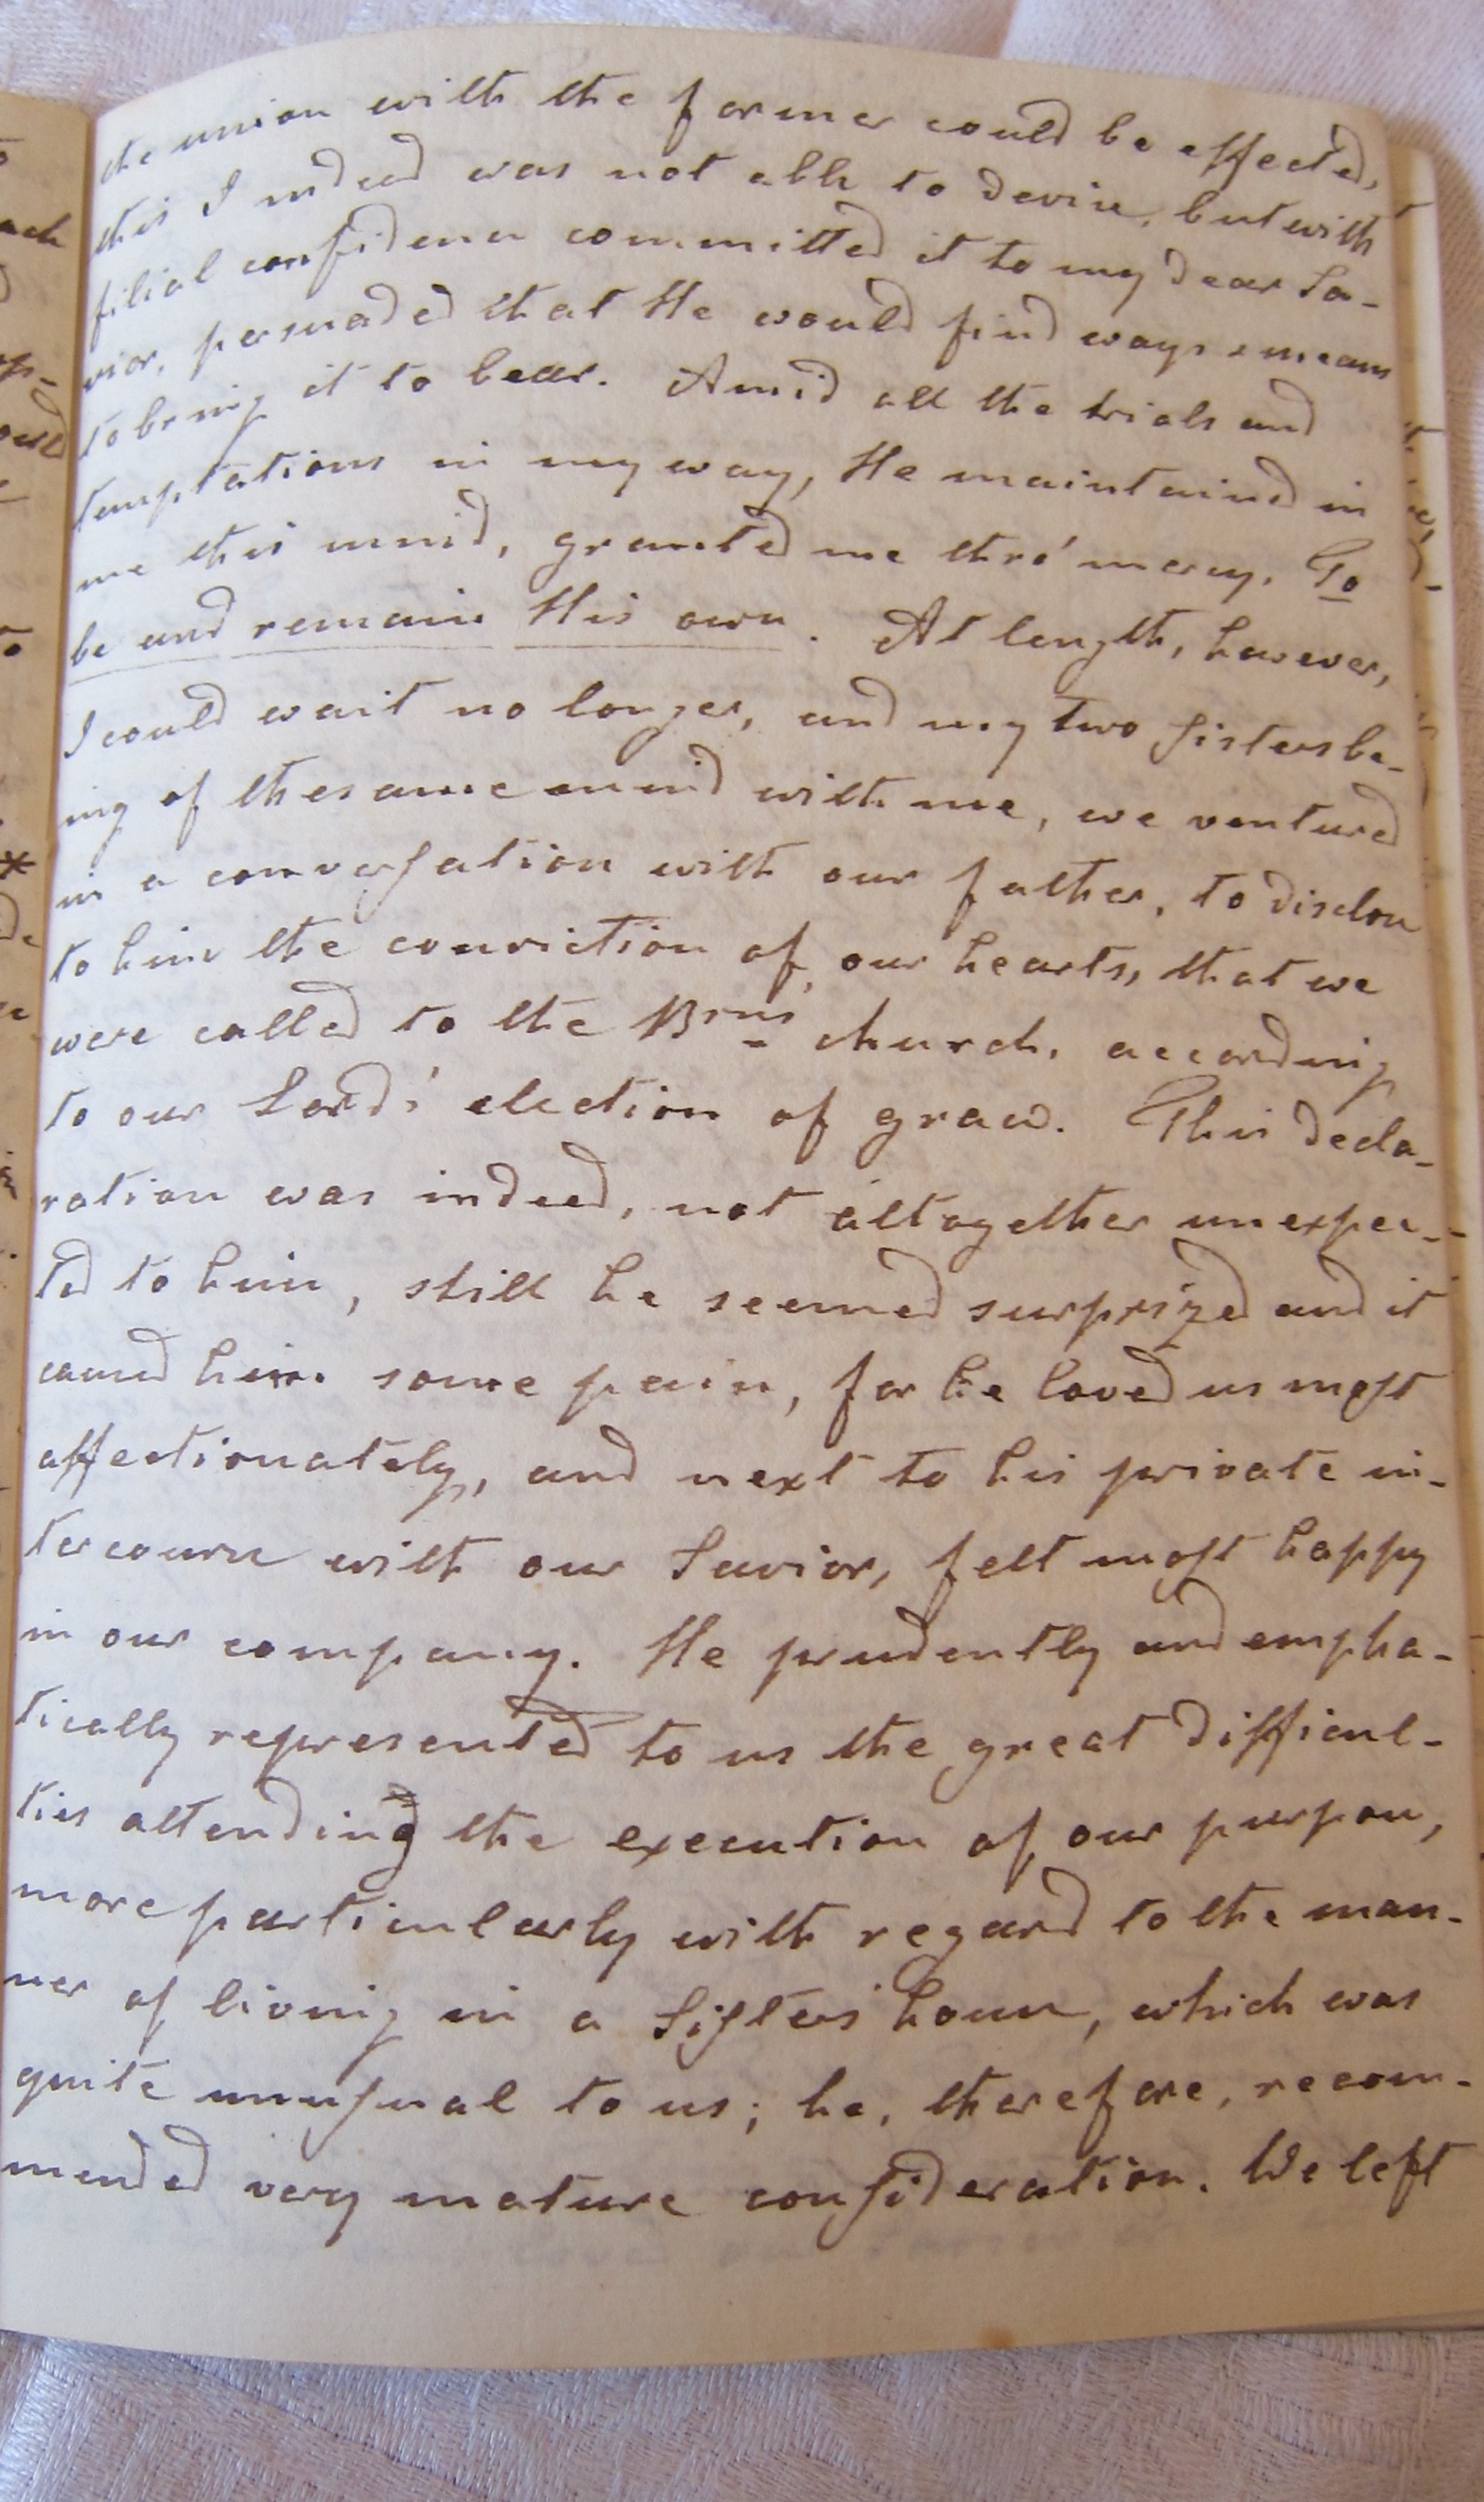 the union with the former could be effected,
this I indeed was not able to devise, but with
filial confidence committed it to my dear Sa-
vior, persuaded that He would find ways & means
to bring it to bear. Amid all the trials and
temptations in my way, He maintained in
me this mind, granted me thro' mercy, To
be and remain His own. At length, however,
I could wait no longer, and my two Sisters be-
ing of the same mind with me, we ventured
in a conversation with our father, to disclose
to him the conviction of our hearts, that we
were called to the Brns' church, according
to our Lord's election of grace. This decla-
ration was indeed, not altogether unexpec-
ted to him, still he seemed surprized and it
caused him some pain, for he loved us most
affectionately, and next to his private in-
tercourse with our Savior, felt most happy
in our company. He prudently and empha-
tically represented to us the great difficul-
ties attending the execution of our purpose,
more particularly with regard to the man-
ner of living in a Sisters' house, which was
quite unusual to us; he, therefore, recom-
mended very mature consideration. We left